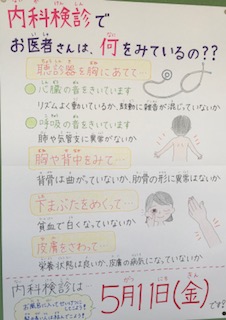 内科検診で
お医者さんは、何をみているの??
聴診器を胸にあてて…
心臓の音をきいています
リズムよく動いているか、鼓動に雑音が混じっていないか
呼吸の音をきいています
肺や気管支に異常がないか
胸や背中をみて…
背骨は曲がっていないか、肋骨の形に異常はないか
下まぶたをめくって…
貧血で白くなっていないか
皮膚をさわって…
栄養状態は良いか、皮膚の病気になっていないか
内科検診は
5月11日(金)
です